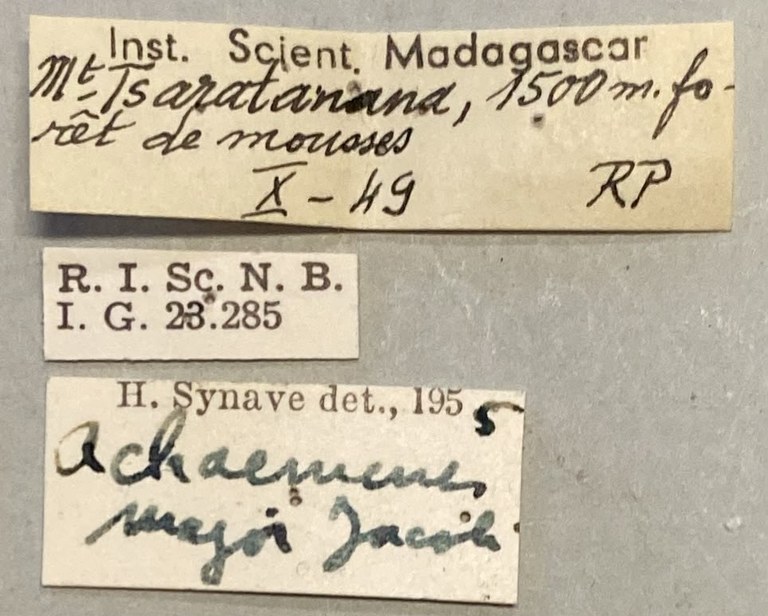 Inst. Scient. Madagascar
Mt Tsaratanana, 1500 m. fo-
rêt de mousses
X - 49 RP
R. I. Sc. N. B.
I. G. 23.285
H. Synave det., 1955
Achaemenes
major Jacobi